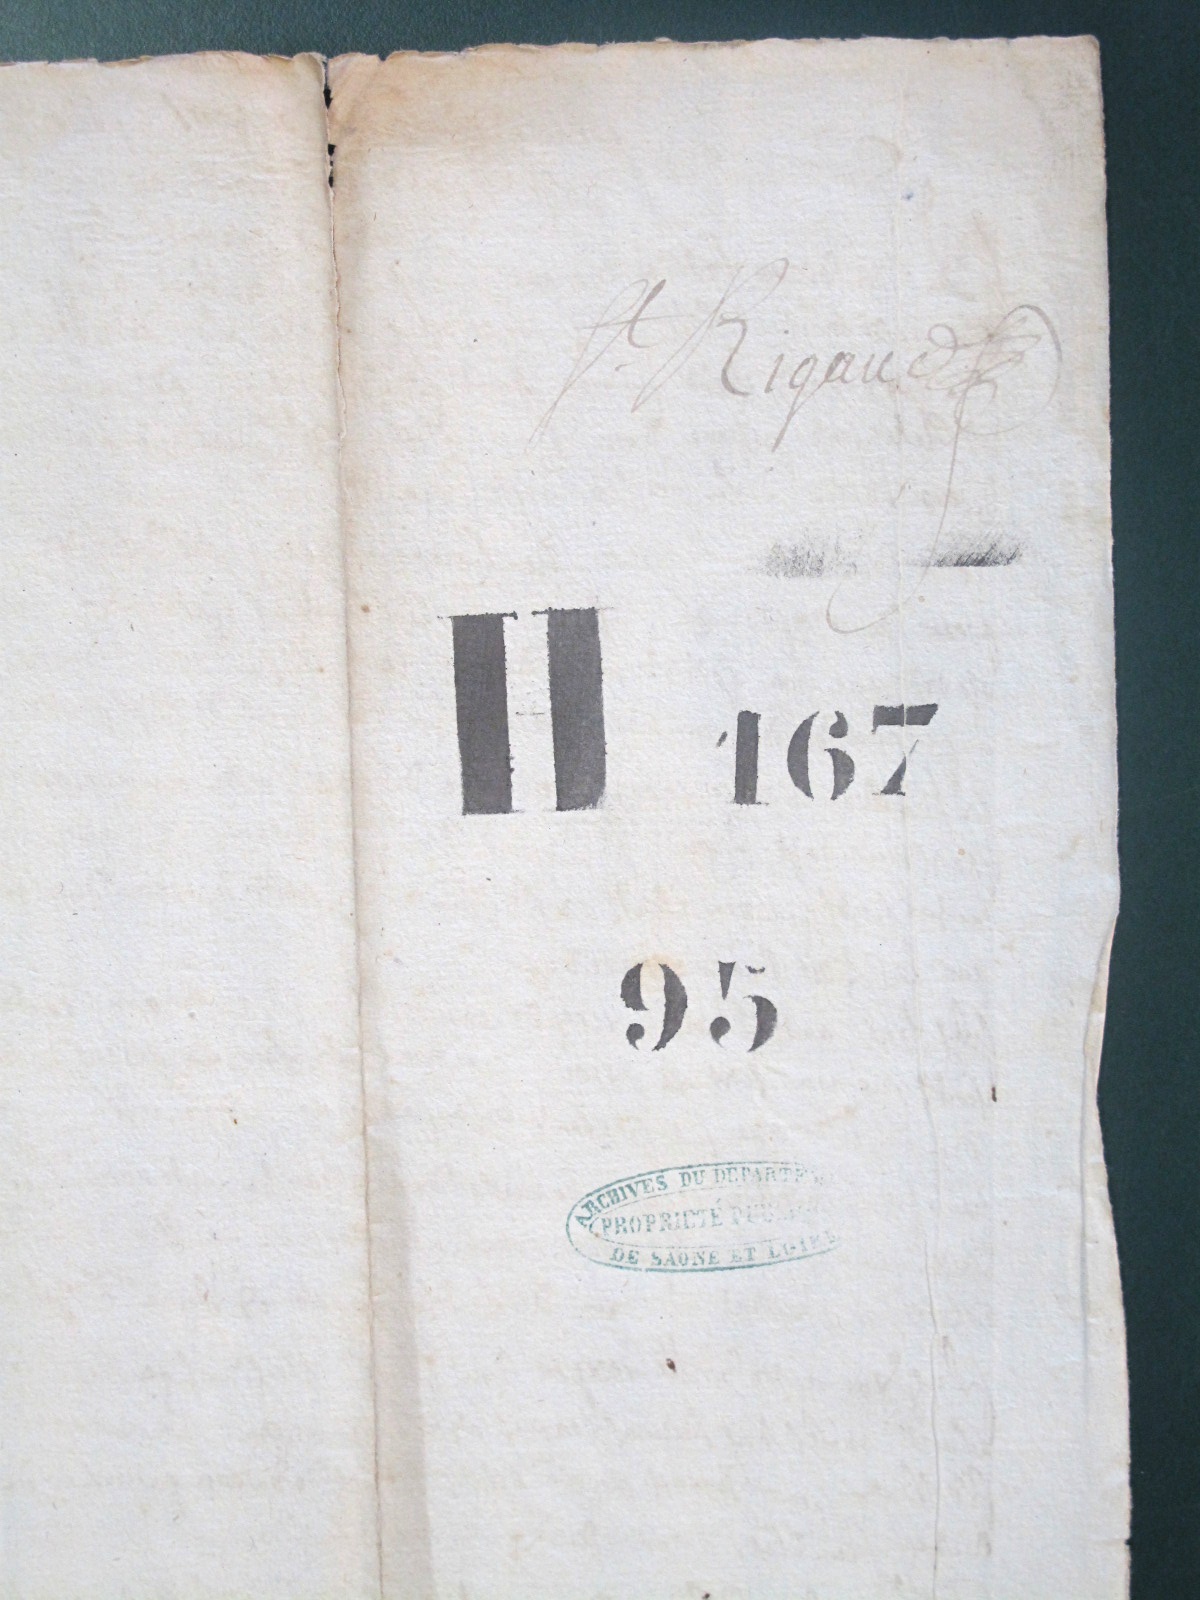 St. Rigaud
H 167
95
ARCHIVES DU DEPARTEM
PROPRIETÉ PUBLIQUE
DE SAONE ET LOIRE